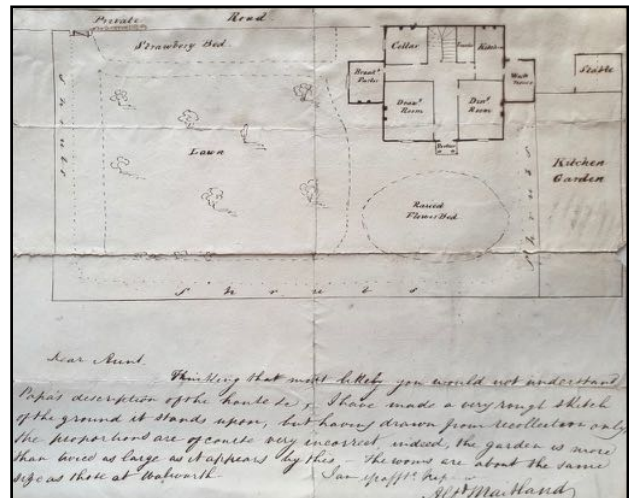 Private Road
Strawbery Bed.
Cellar
Kitchen
Stable
Breakt. Parlor
Wash House
Drawg. Room
Ding. Room
Shrubs
Lawn
Kitchen Garden
Raised Flower Bed
Shrubs
Shrubs
Dear Aunt.
Thinking that most likely you would not understand
Papa's description of the house &c, I have made a very rough sketch
of the ground it stands upon, but having drawn from recollection only
the proportions are of course very incorrect, indeed, the garden is more
than twice as large as it appears by this - The rooms are about the same
size as those at Walworth.
I am yr afft.
Maitland